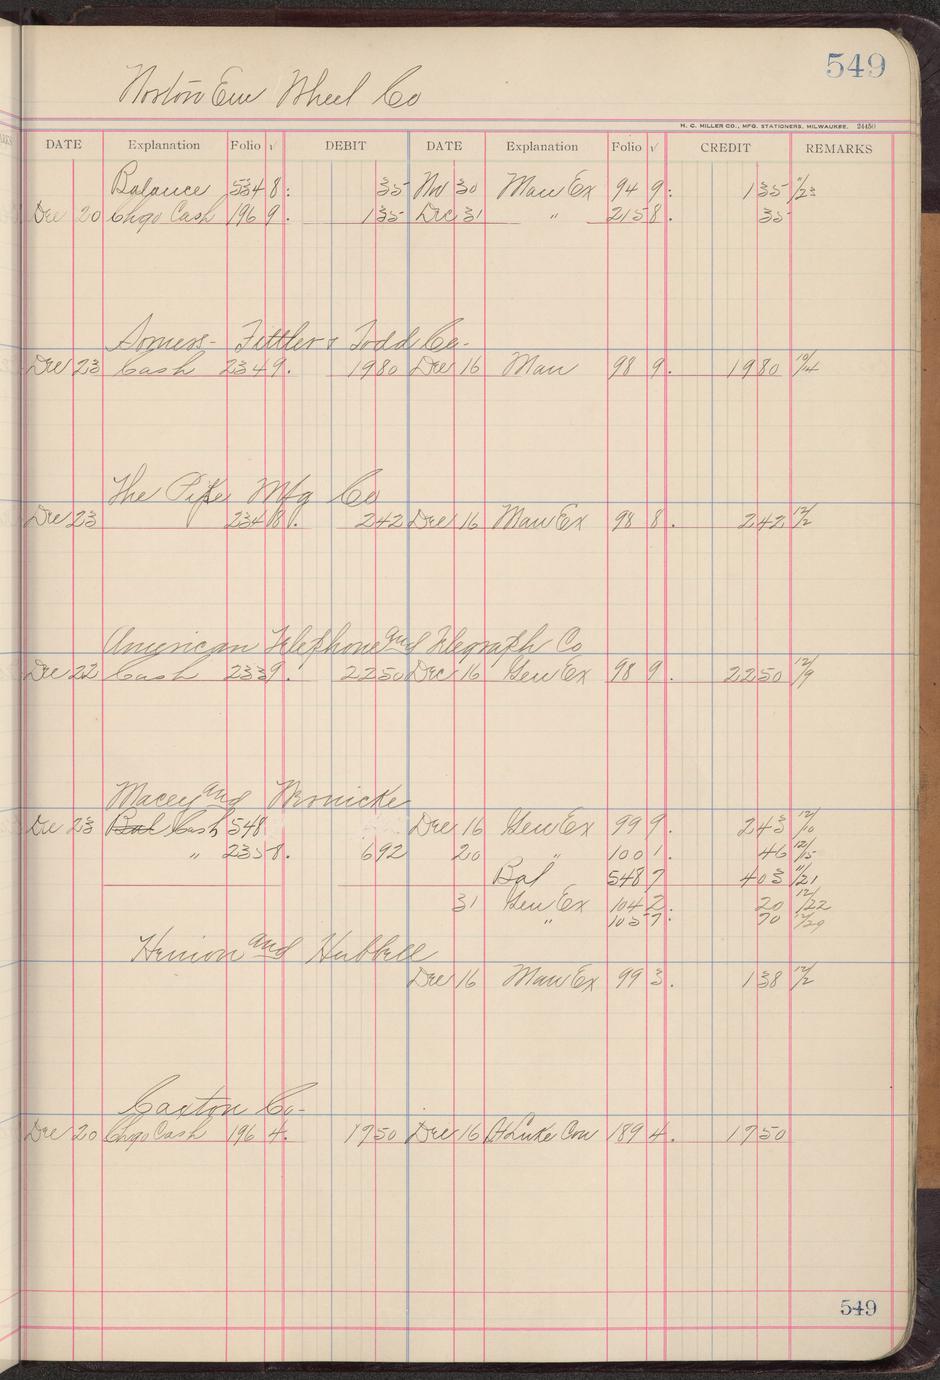 549
Norton Em Wheel Co
H. C. MILLER CO., MFG. STATIONERS, MILWAUKEE. 24450
DATE Explanation Folio √ DEBIT DATE Explanation Folio √ CREDIT REMARKS
Balance 534 8: 35 Nov 30 Man Ex 94 9: 135 11/23
Dec 20 Chgo Cash 196 9. 135 Dec 31 " 215 8. 35
Somers- Fittler & Todd Co-
Dec 23 Cash 234 9. 1980 Dec 16 Man 98 9. 1980 10/4
The Pike Mfg Co
Dec 23 234 8. 242 Dec 16 Man Ex 98 8. 242 12/2
American Telephone and Telegraph Co
Dec 22 Cash 233 9. 2250 Dec 16 Gen Ex 98 9. 2250 12/9
Macey and Wernicke
Dec 23 Bal Cash 548 Dec 16 Gen Ex 99 9. 243 12/10
" 235 8. 692 20 " 100 1. 46 12/15
Bal 548 7 403 11/21
31 Gen Ex 104 2. 20 12/22
" 105 7: 70 12/29
Henion and Hubbell
Dec 16 Man Ex 99 3. 138 12/2
Caxton Co-
Dec 20 Chgo Cash 196 4. 1750 Dec 16 St Luke Con 189 4. 1750
549